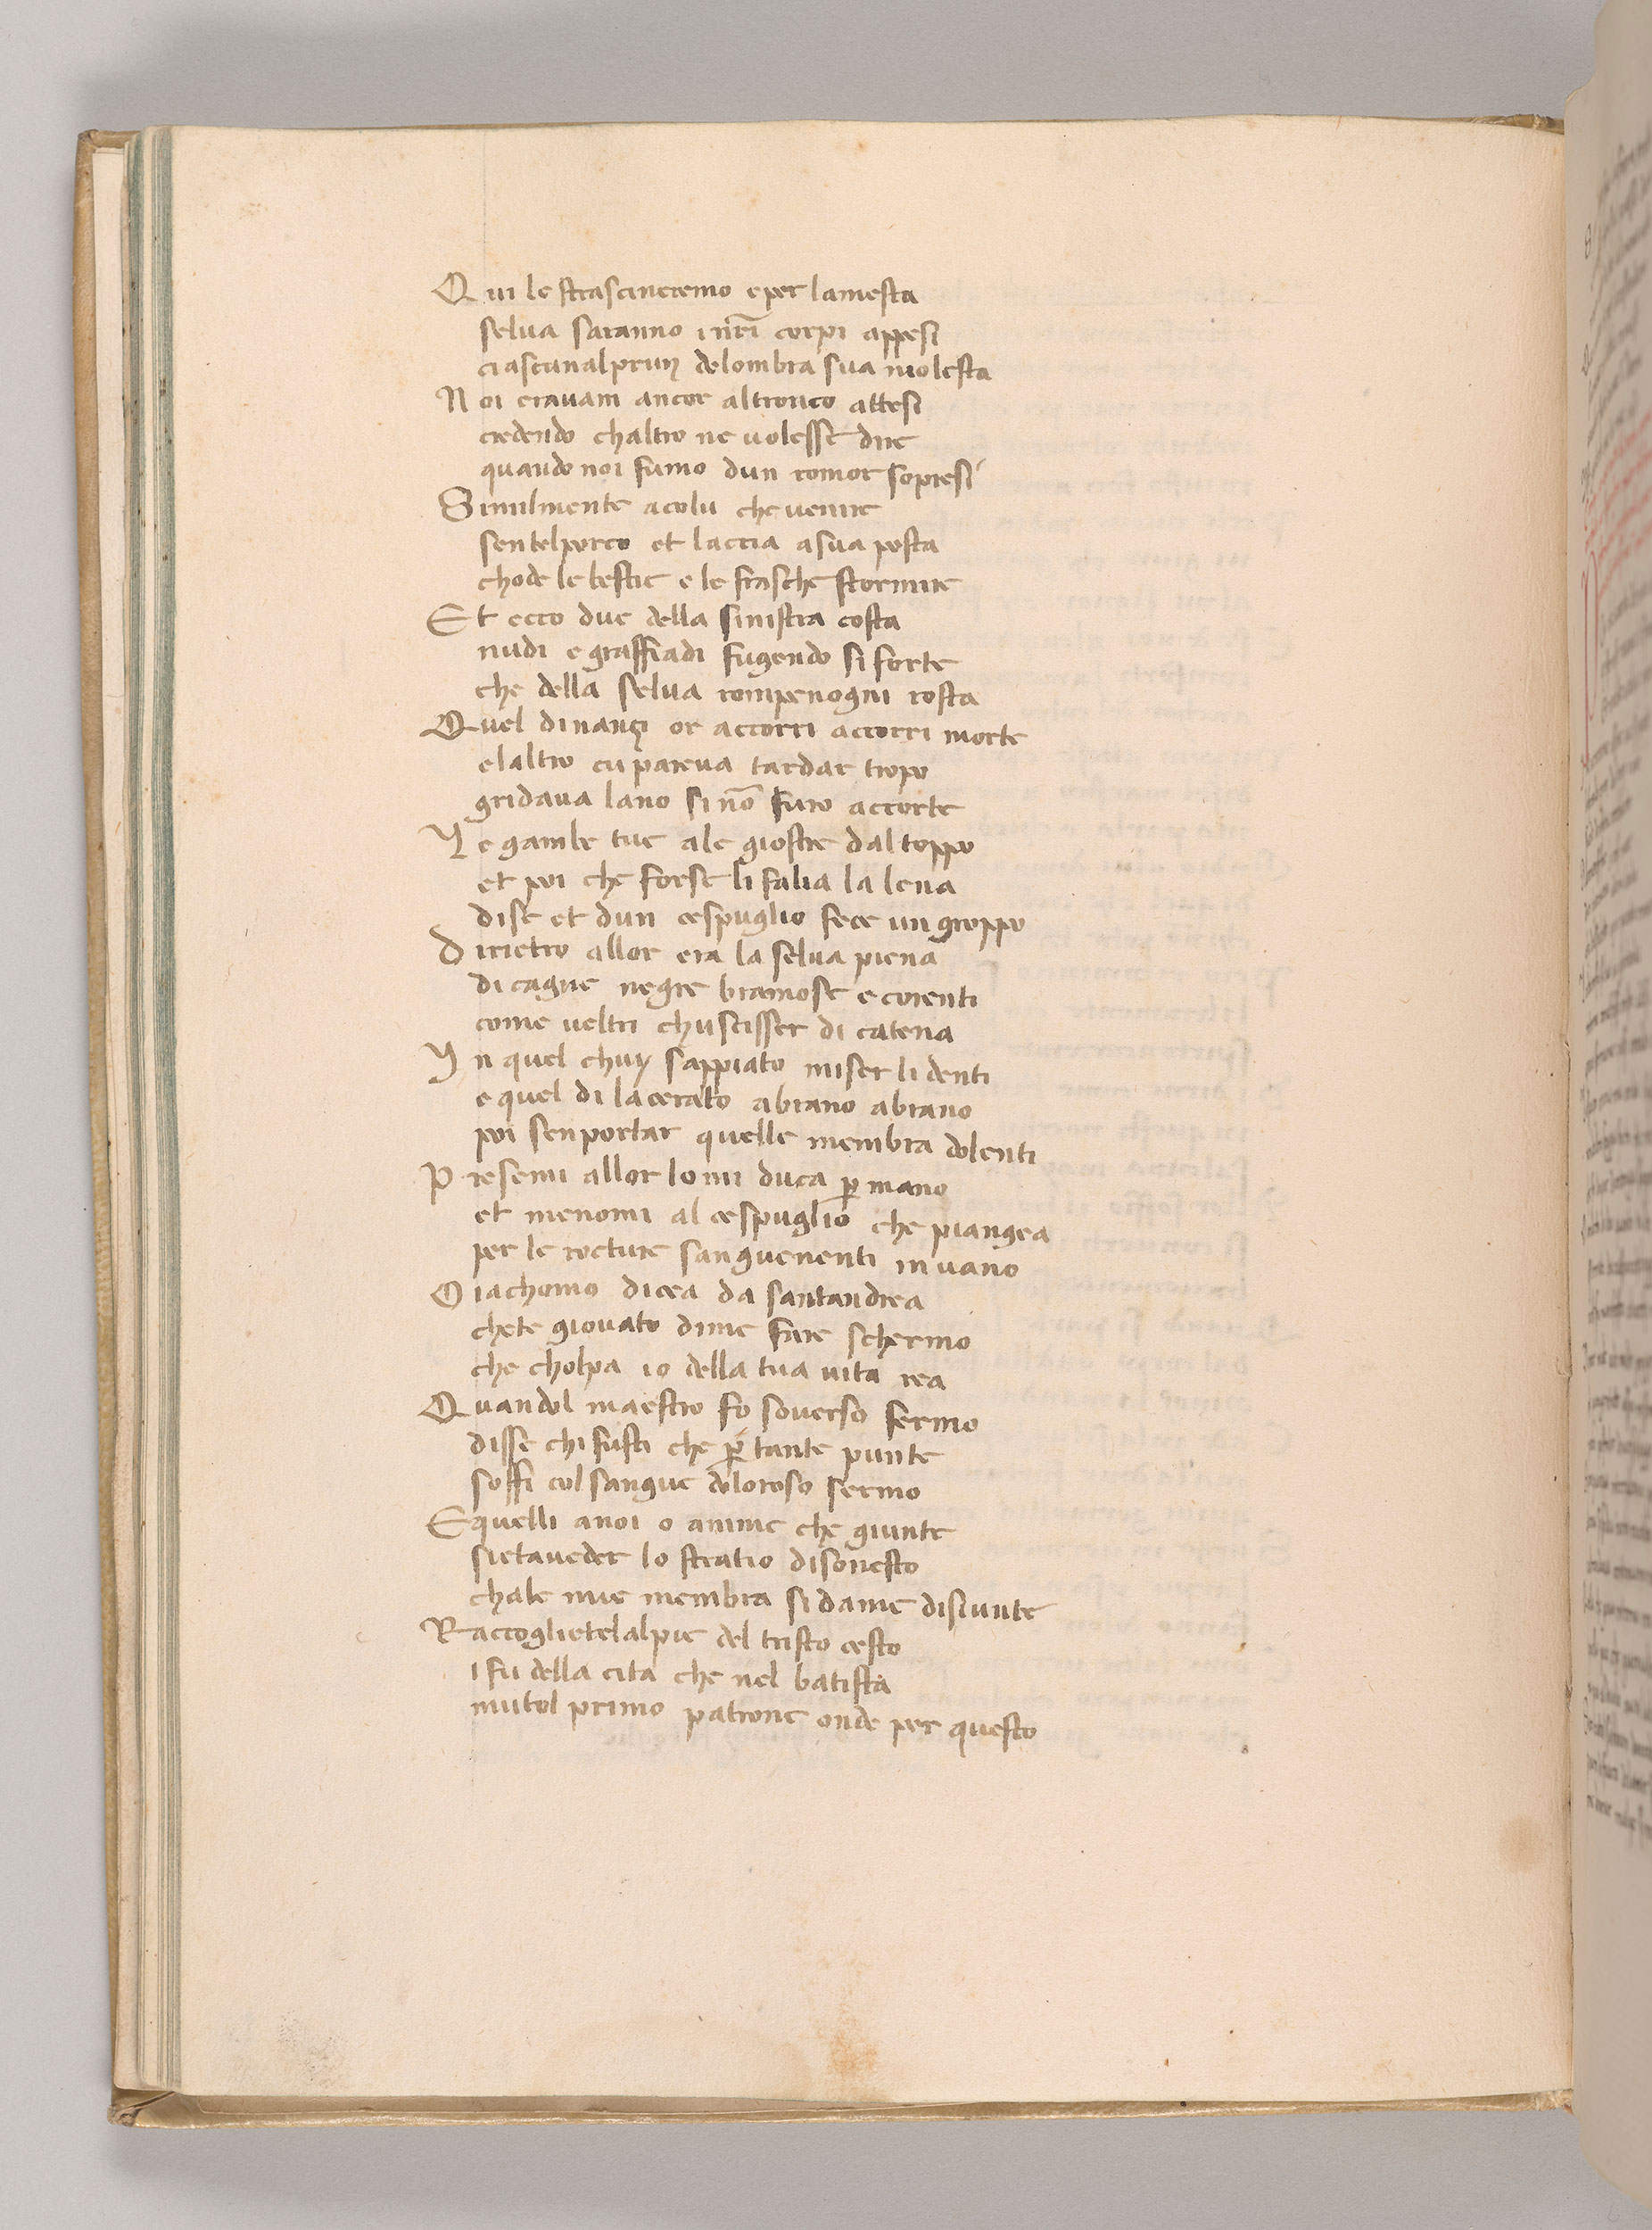 Qui le strascineremo e per lamesta
selva saranno i nr̄i corpi appesi
ciascunalprun delombra sua molesta
Noi eravam ancor altronco attesi
credendo chaltro ne volesse dire
quando noi fumo dun romor sopresi
Similmente acolu che venire
sentelporco et laccia asua posta
chode le bestie e le frasche stormire
Et ecco due della sinistra costa
nudi e graffiadi fugendo si forte
che della selva rompenogni rosta
Quel dinançi or accorri accorri morte
elaltro cu pareva tardar tropo
gridava lano si nō furo accorte
Le gambe tue ale giostre dal toppo
et poi che forse li falia la lena
dise et dun cespuglio fece un groppo
Dirietro allor era la selva piena
di cagne negre bramose e corenti
come veltri chuscisser di catena
In quel chuy sappiato miser li denti
e quel dilacerato abrano abrano
poi senportar quelle membra dolenti
Presemi allor lo mi duca ꝑ mano
et menomi al cespuglio che piangea
per le rocture sanguenenti in vano
O iachomo dicea da santandrea
chete giovato dime fare schermo
che cholpa io della tua vita rea
Quandol maestro fo soverso fermo
disse chi fusti che ꝑ tante punte
soffi col sangue doloroso sermo
Equelli anoi o anime che giunte
sietaveder lo stratio disonesto
chale mie membra si dame disiunte
Raccoglietelalpie del tristo cesto
i fu della cita che nel batista
mutol primo patrone onde per questo